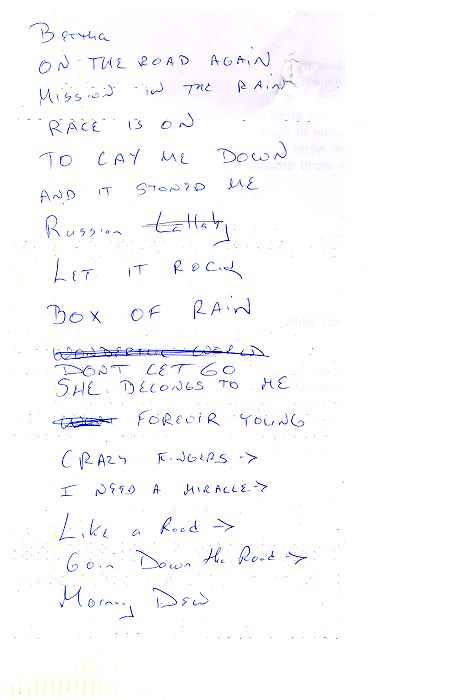 Bertha
ON THE ROAD AGAIN
MISSION IN THE RAIN
RACE IS ON
TO LAY ME DOWN
AND IT STONED ME
Russian Lallaby
LET IT ROCK
BOX OF RAIN
WONDERFUL WORLD
DONT LET GO
SHE BELONGS TO ME
FOREVIR YOUNG
CRAZY FINGERS ->
I NEED A MIRACLE ->
Like a Road ->
Goin Down the Road ->
Morning Dew